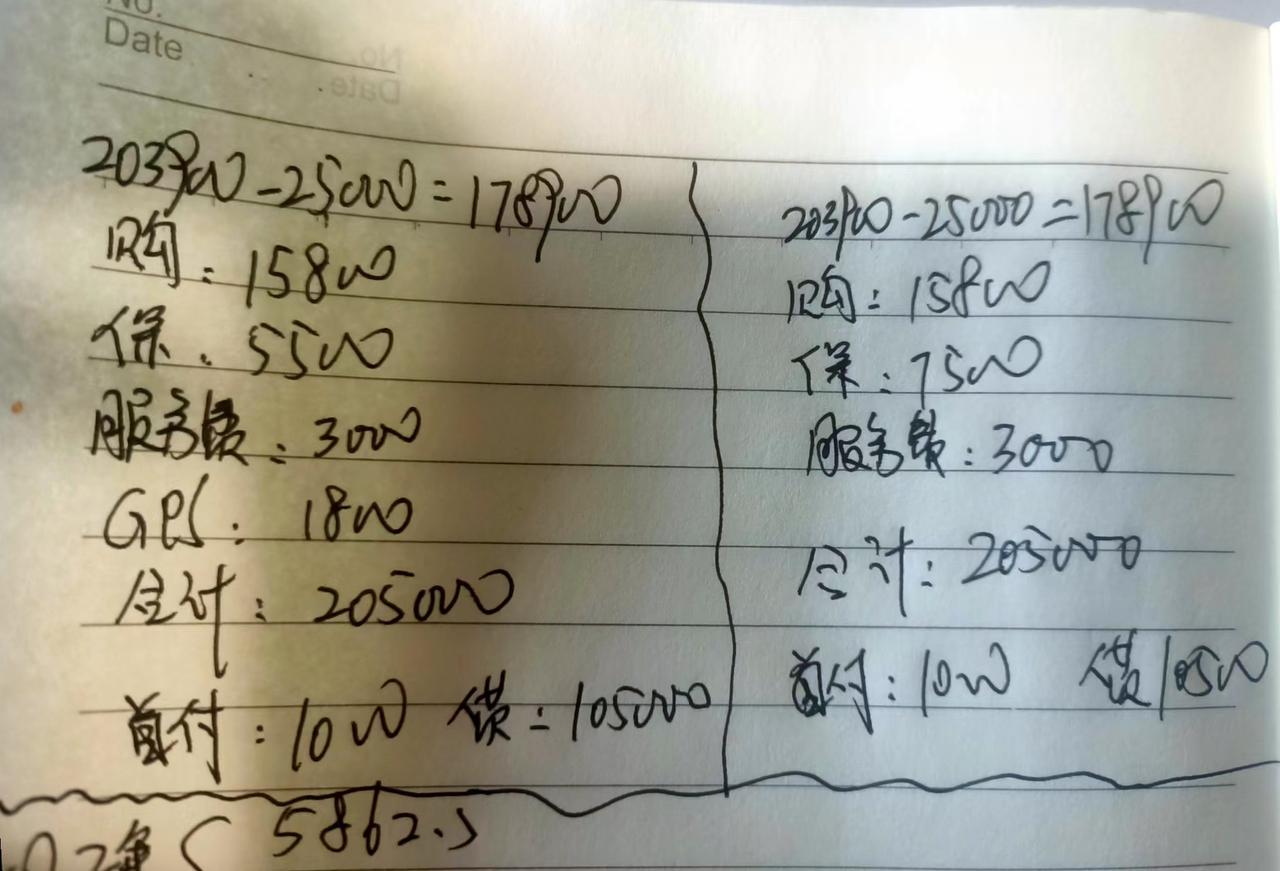 No.
Date
203900-25000=178900
购：15800
保：5500
服务费：3000
GPS：1800
合计：205000
首付：10000 贷：105000
203900-25000=178900
购：15800
保：7500
服务费：3000
合计：205000
首付：10000 贷10500
5862.5